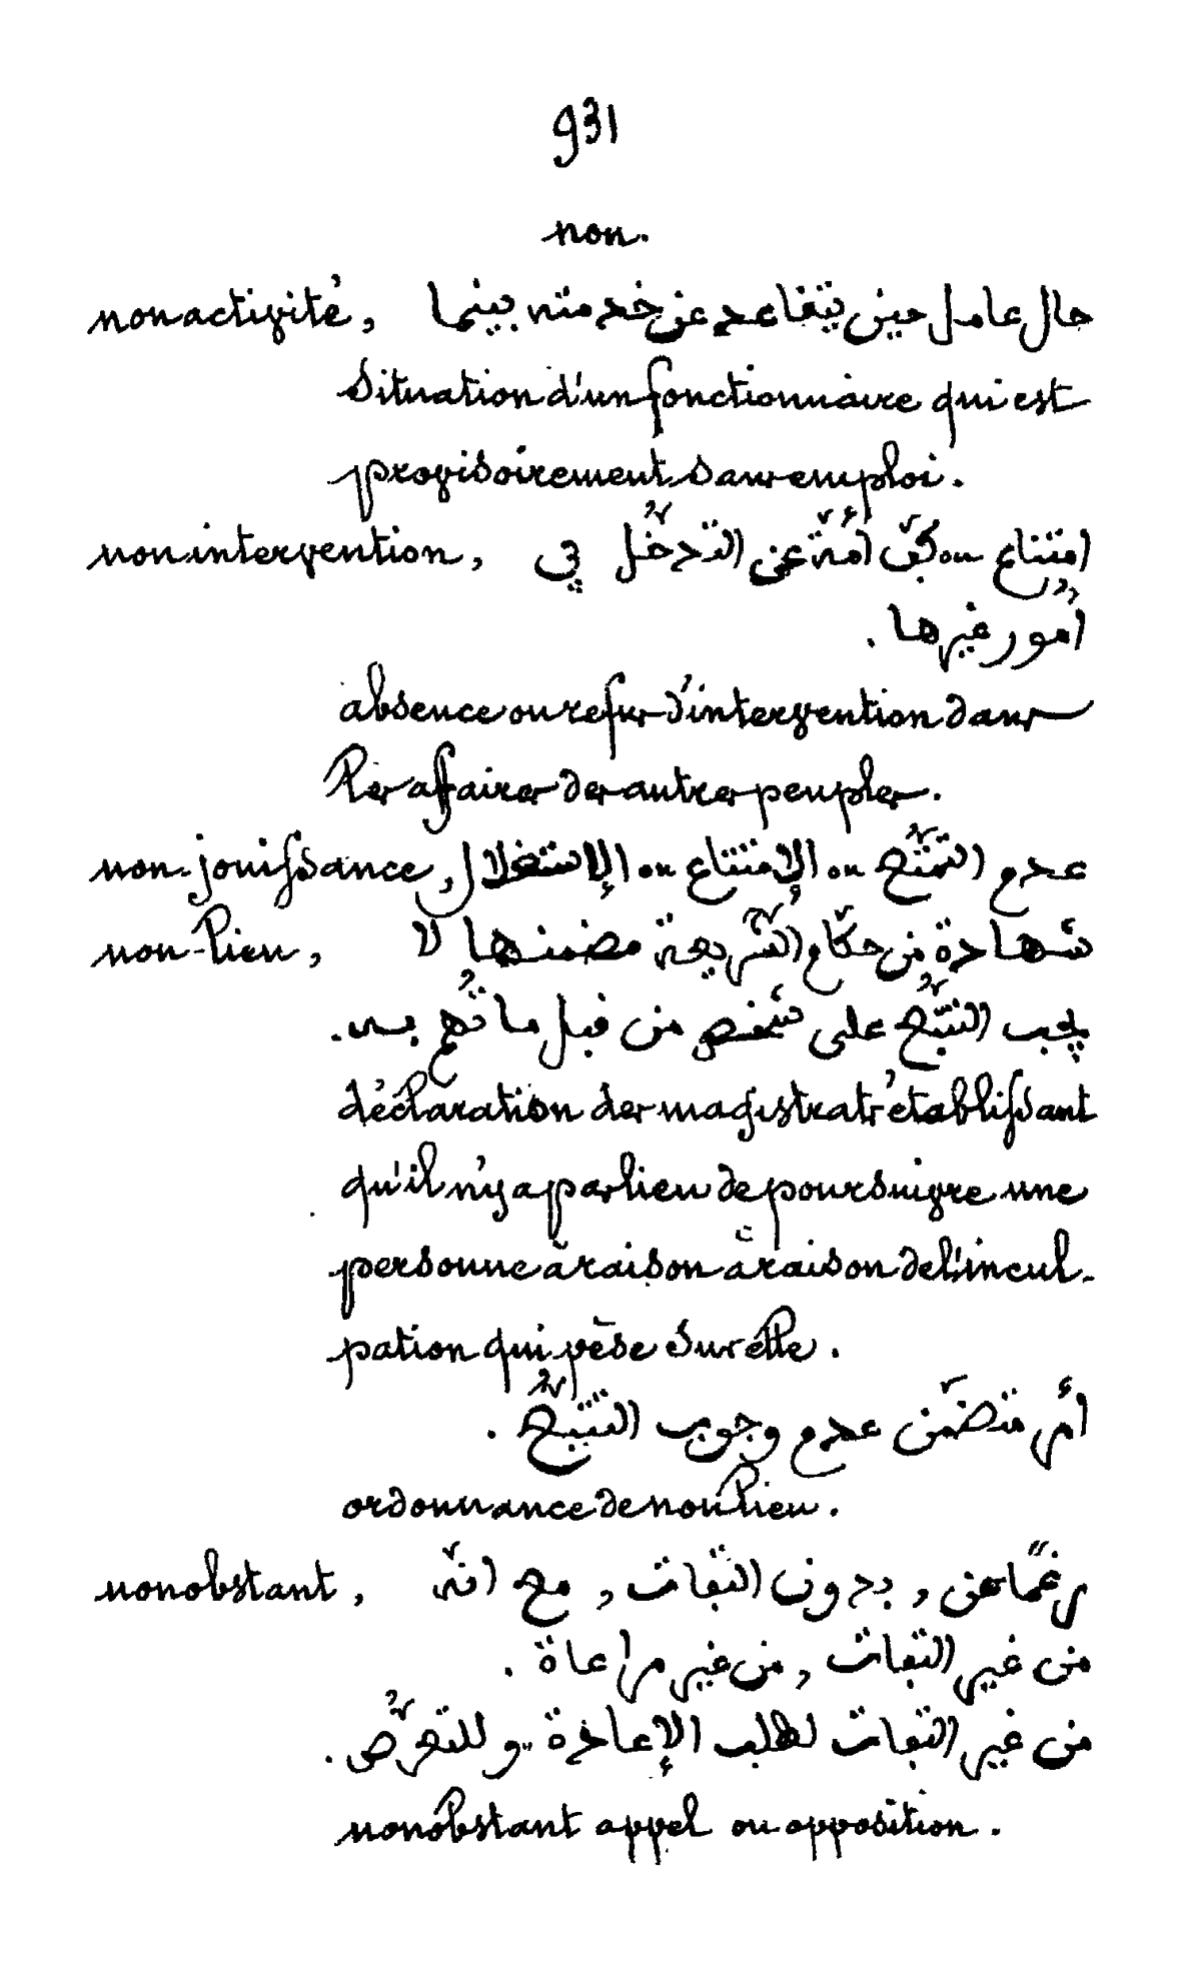 931
non.
nonactivité, حال عامل حين يتقاعد عن خدمته بينما
situation d'un fonctionnaire qui est
provisoirement sans emploi.
nonintervention, امتناع ou كفّ أمّة عن التدخّل في
أمور غيرها.
absence ou refus d'intervention dans
les affaires des autres peuples.
non-jouissance, عدم التمتّع ou الإمتناع ou الإستغلال
non-lieu, شهادة من حكّام الشّريعة مضمنها لا
يجب التتبّع على شخص من قبل ما تُّهم به.
déclaration des magistrats établissant
qu'il n'y a pas lieu de poursuivre une
personne à raison à raison de l'incul-
pation qui pèse sur elle.
أمر متضمّن عدم وجوب التتبّع.
ordonnance de non lieu.
nonobstant, رغمًا عن, بدون التفات, مع انّه
من غير التفات, من غير مراعاة.
من غير التفات لطلب الإعادة و للتعرّض.
nonobstant appel ou opposition.